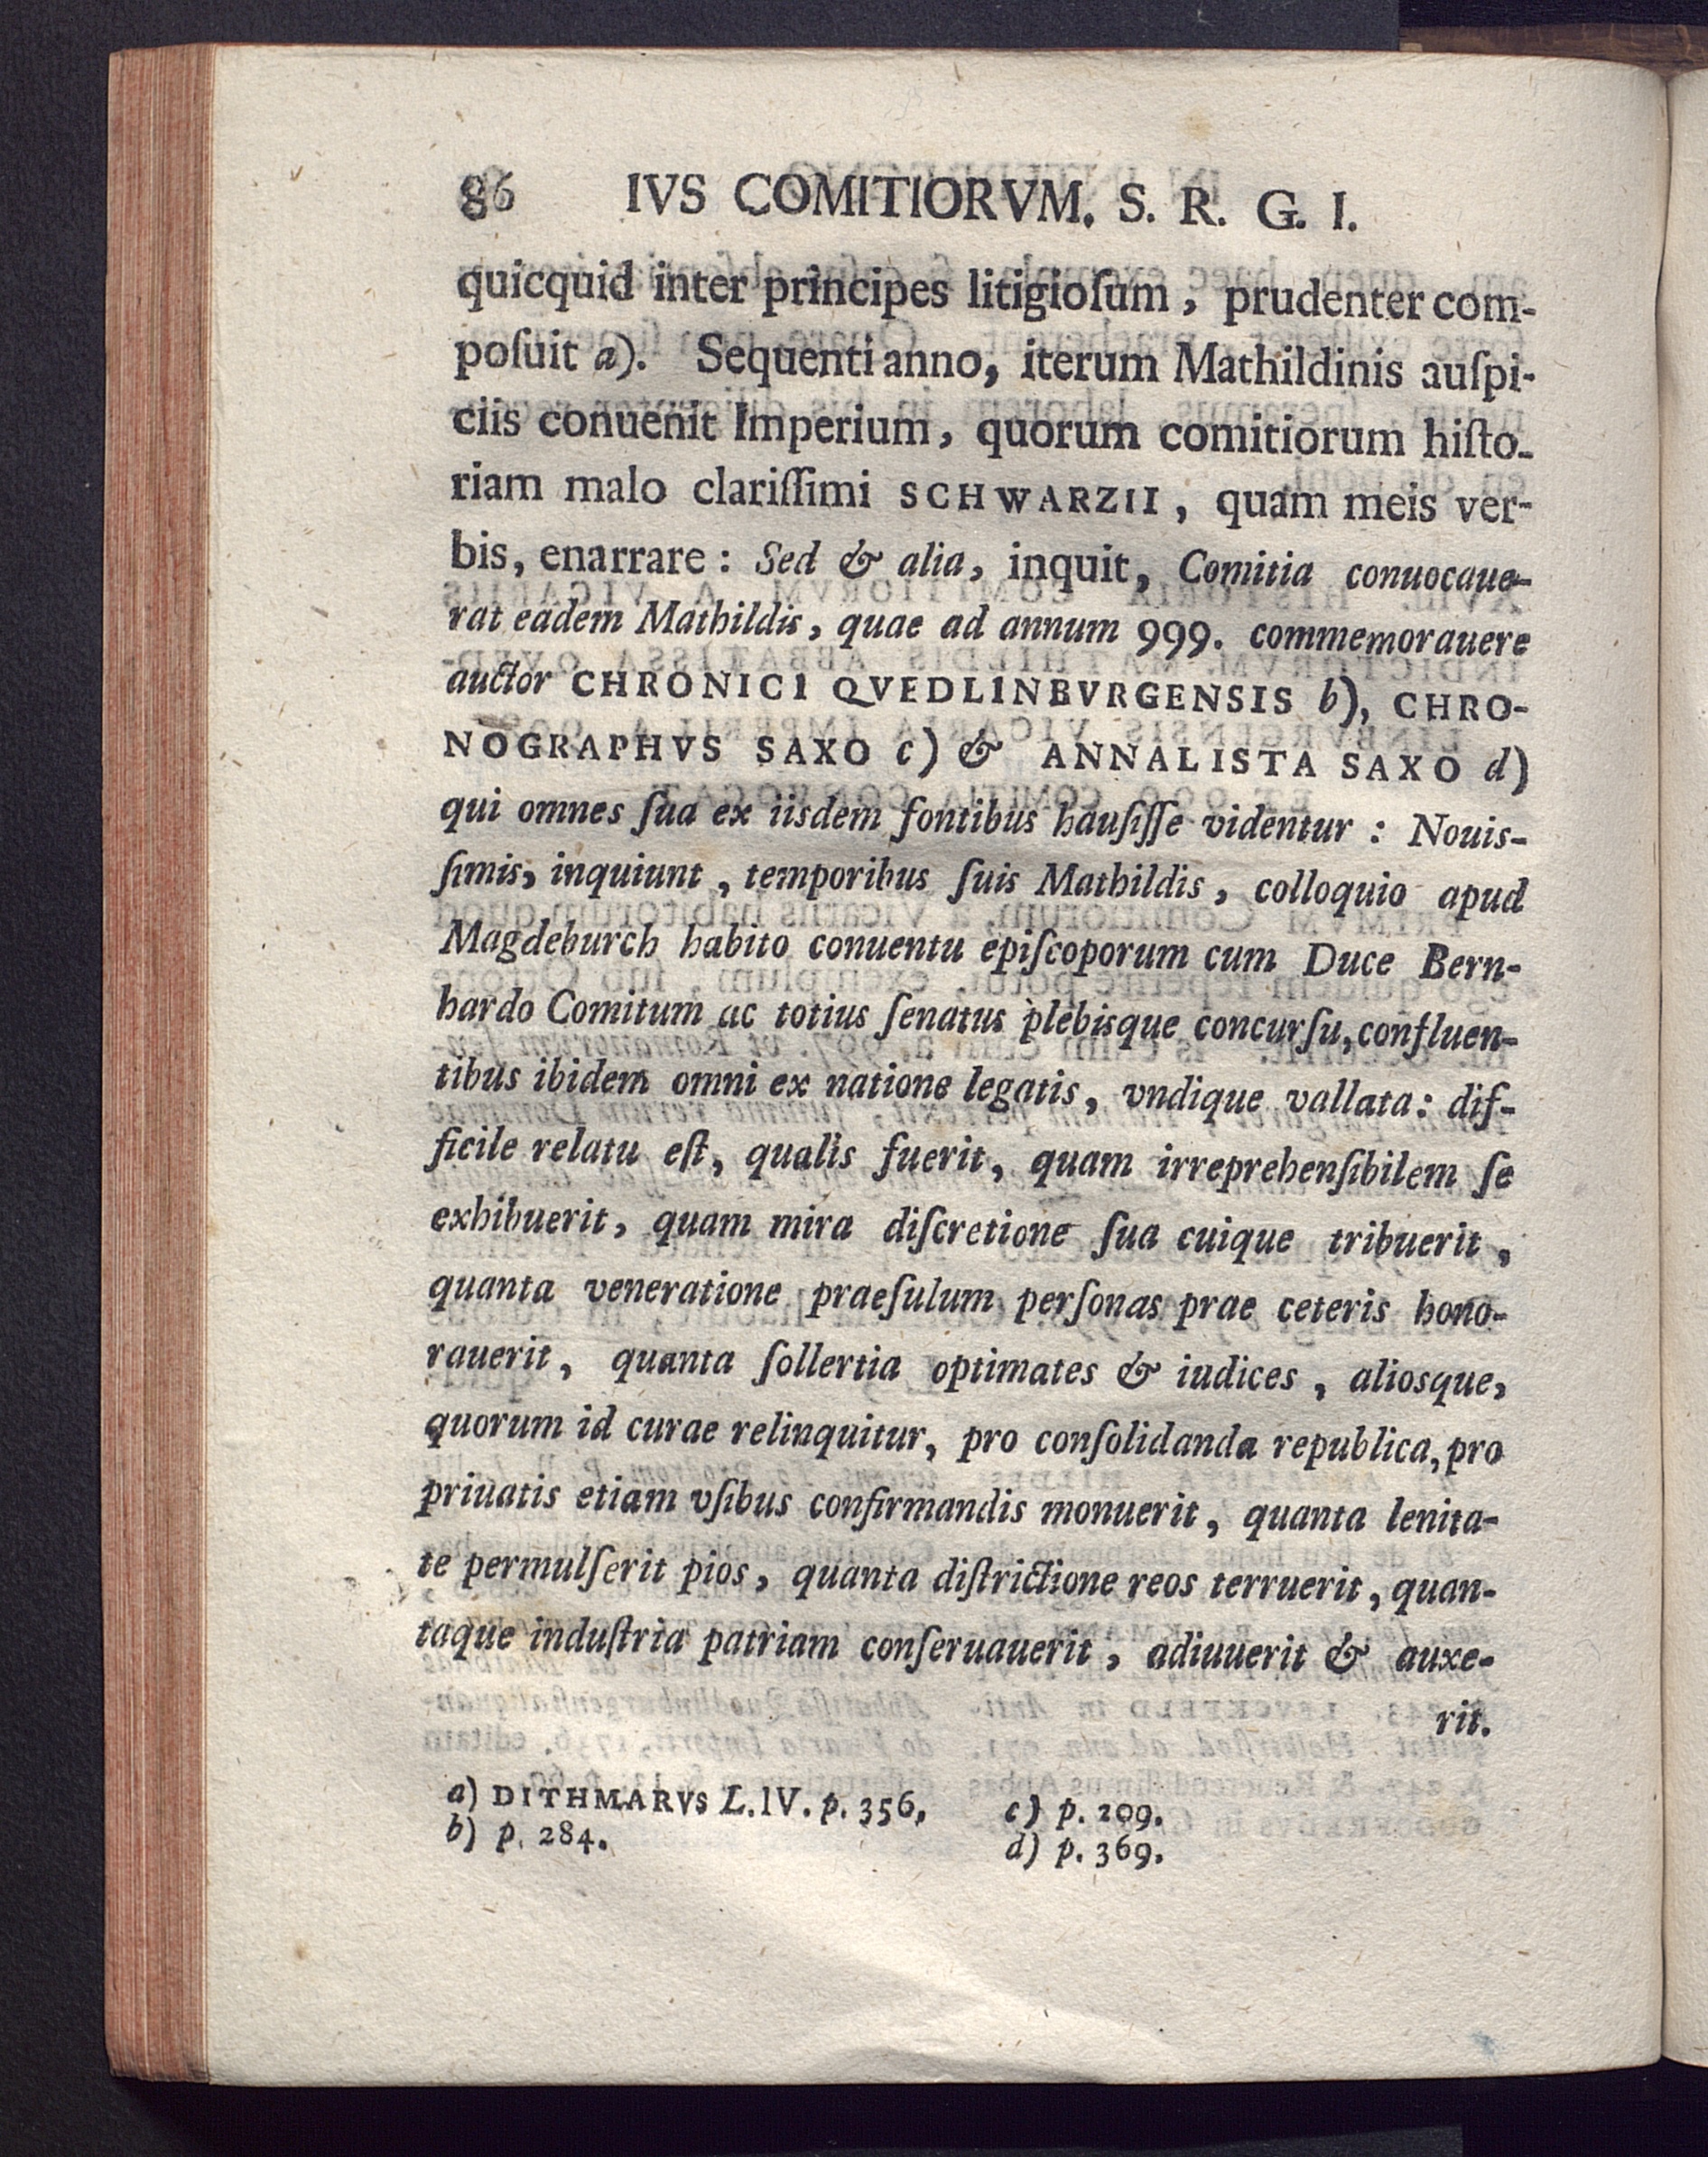 86 IVS COMITIORVM. S. R. G. I.
quicquid inter principes litigioſum, prudenter com-
poſuit a). Sequenti anno, iterum Mathildinis auſpi-
ciis conuenit Imperium, quorum comitiorum hiſto-
riam malo clariſſimi SCHWARZII, quam meis ver-
bis, enarrare: Sed & alia, inquit, Comitia conuocaue-
rat eadem Mathildis, quae ad annum 999. commemorauere
auctor CHRONICI QVEDLINBVRGENSIS b), CHRO-
NOGRAPHVS SAXO c) & ANNALISTA SAXO d)
qui omnes ſua ex iisdem fontibus hauſiſſe videntur: Nouis-
ſimis, inquiunt, temporibus ſuis Mathildis, colloquio apud
Magdeburch habito conuentu epiſcoporum cum Duce Bern-
hardo Comitum ac totius ſenatus plebisque concurſu, confluen-
tibus ibidem omni ex natione legatis, vndique vallata: dif-
ficile relatu eſt, qualis fuerit, quam irreprehenſibilem ſe
exhibuerit, quam mira diſcretione ſua cuique tribuerit,
quanta veneratione praeſulum perſonas prae ceteris hono-
rauerit, quanta ſollertia optimates & iudices, aliosque,
quorum id curae relinquitur, pro conſolidanda republica, pro
priuatis etiam vſibus confirmandis monuerit, quanta lenita-
te permulſerit pios, quanta diſtrictione reos terruerit, quan-
taque induſtria patriam conſeruauerit, adiuuerit & auxe-
rit.
a) DITHMARVS L. IV. p. 356.
b) p. 284.
c) p. 209.
d) p. 369.